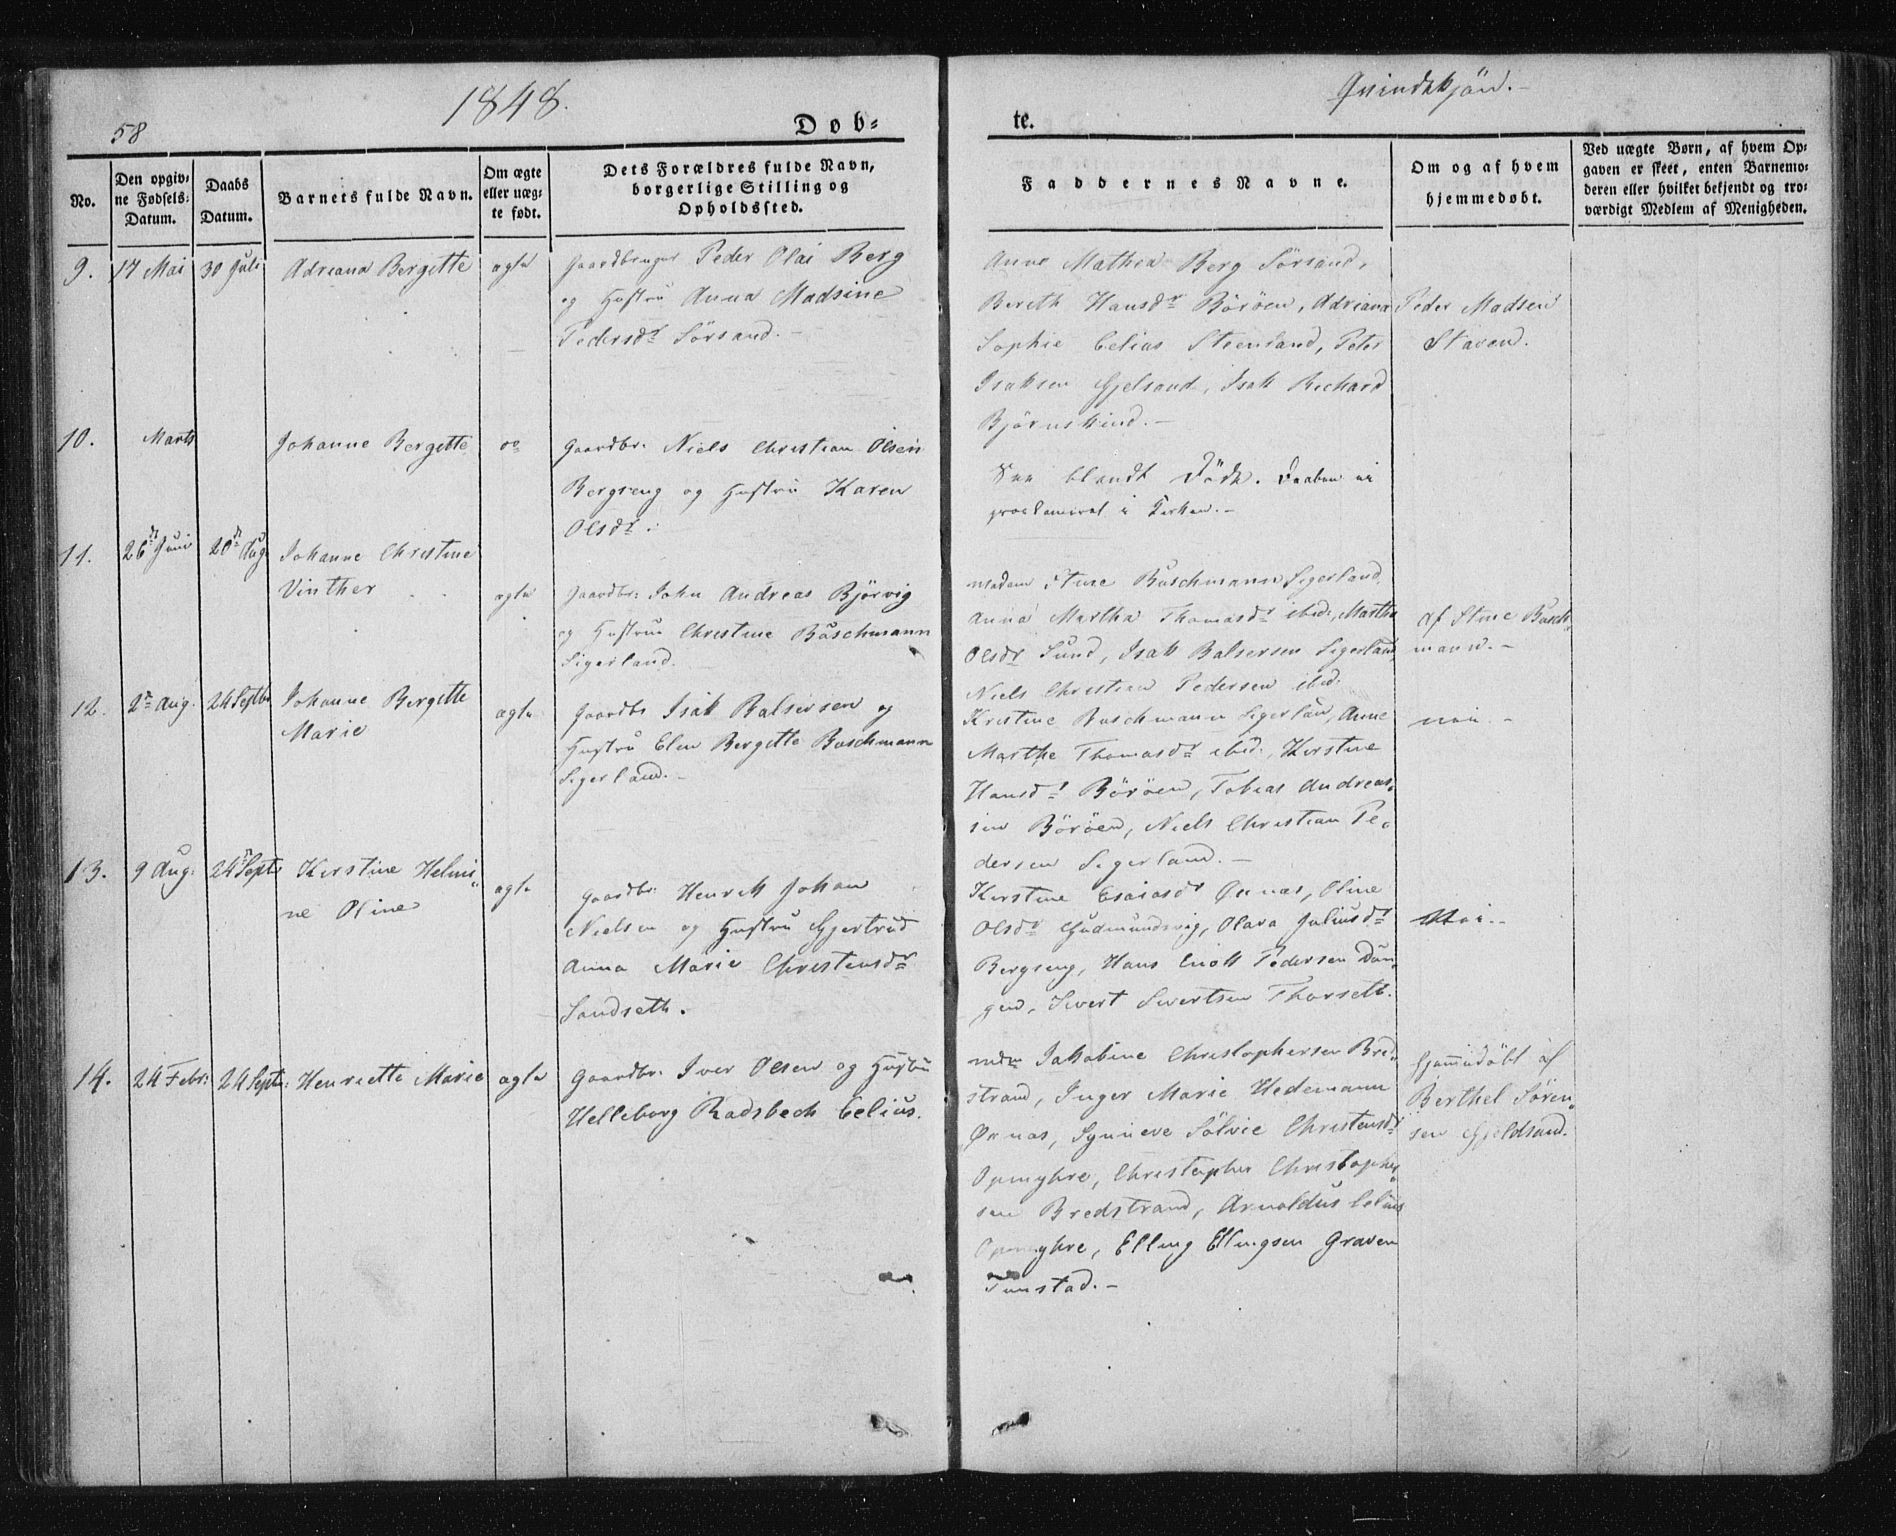 58
1848.
Döb-
te.
Qvindekjön.-
No.
Den opgiv-
ne Fødsels-
Datum.
Daabs
Datum.
Barnets fulde Navn.
Om ægte
eller uæg-
te født.
Dets Forældres fulde Navn,
borgerlige Stilling og
Opholdssted.
Faddernes Navne.
Om og af hvem
hjemmedøbt.
Ved uægte Børn, af hvem Op-
gaven er skeet, enten Barnemo-
deren eller hvilket bekjendt og tro-
værdigt Medlem af Menigheden.
9.
17 Mai
30 Juli
Adriana Bergitte
ægte
Gaardbruger Peder Olai Berg
og Hustru Anna Madsine
Pedersdr Sörsand.-
Anne Mathea Berg Sörsand,
Bereth Hansdr Böröen, Adriana
Sophie Celius Steenland, Peter
Isaksen Gjelsand, Isak Richard
Björnskind.-
Peder Madsen
Staven.
10.
Marts
Johanne Bergitte
do
Gaardbr: Niels Christian Olsen
Bergseng og Hustru Karen
Olsdr.
See blandt Födte. Daaben ei
proclameret i Kirken.-
11.
26de Juni
20de Aug
Johanne Christine
Vinther
ægte
Gaardbr: John Andreas Björvig
og Hustrue Christine Büschmann
Sigerland.
Madam Stine Buschmann Sigerland,
Anna Martha Thomasdr ibid:, Martha
Olsdr Sund, Isak Balsersen Sigerland,
Niels Christian Pedersen ibid:
af Stine Busch-
mann.-
12.
2de Aug.
24 Septbr
Johanne Bergitte
Marie
ægte
Gaardbr Isak Balsersen og
Hustru Elen Bergitte Buschmann
Sigerland.-
Kristine Buschmann Sigerlan, Anne
Marthe Thomasdr ibid:, Kirstine
Hansdr Böröen, Tobias Andreas-
sen Böröen, Niels Christian Pe-
dersen Sigerland.-
nei.-
13.
9 Aug:
24 Septr
Kirstine Helmi-
ne Oline
ægte
Gaardbr: Henrik Johan
Nielsen og Hustru Gjertrud
Anna Marie Christensdr
Sandseth.
Kirstine Esaiasdr Ønnæs, Oline
Olsdr Gudmundsvig, Olava Juliusdr
Bergseng, Hans Enok Pedersen Dün-
gen, Sivert Sivertsen Thorseth.
Nei.-
14.
24 Febr:
24 Septr:
Henriette Marie
ægte
Gaardbr: Iver Olsen og Hustru
Helleborg Rodsbech Celius.
Mdm Jakobine Christophersen Bred-
strand, Inger Marie Hedemann
Ønnæs, Synneve Sölvie Christensdr
Opmyhre, Christopher Christopher-
sen Bredstrand, Arnoldus Celius
Opmyhre, Elling Ellingsen Graven
Tunstad.-
Hjemmedöbt af
Berthel Sören-
sen Gjeldsand.